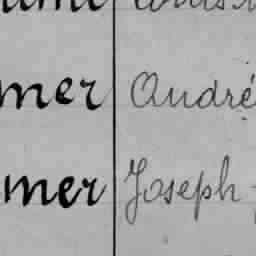 mer André
mer Joseph